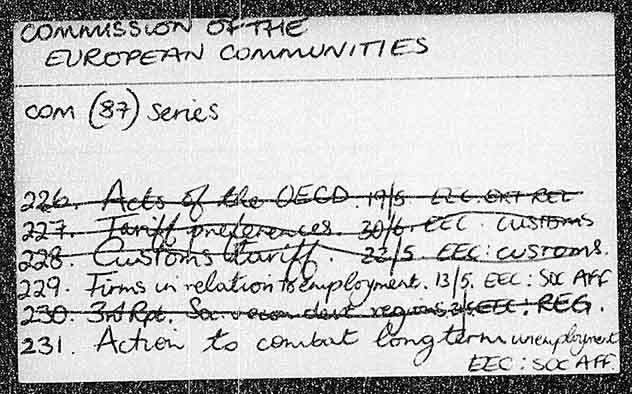 COMMISSION OF THE
EUROPEAN COMMUNITIES
COM (87) Series
226. Acts of the OECD. 19/5 EEC: EXT REL
227. Tariff preferences. 30/6. EEC. CUSTOMS
228. Customs tariff. 22/5 EEC: CUSTOMS.
229. Firms in relation to employment. 13/5. EEC: SOC AFF
230. 3rd Rpt. Soc + econ devt regions EEC: REG.
231. Action to combat long term unemployment
EEC: SOC AFF.